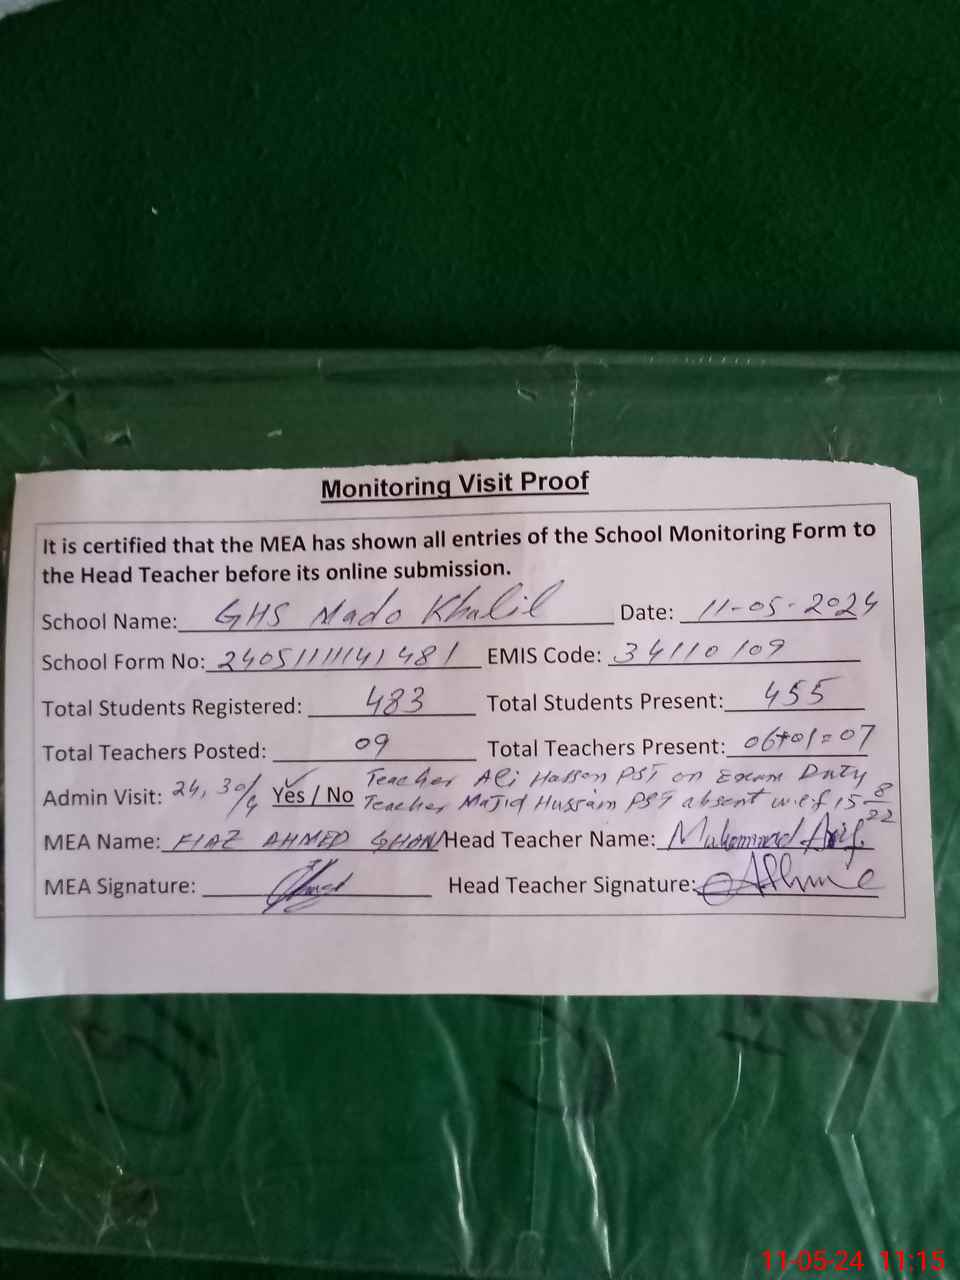 Monitoring Visit Proof
It is certified that the MEA has shown all entries of the School Monitoring Form to
the Head Teacher before its online submission.
School Name: GHS Mado Khalil Date: 11-05-2024
School Form No: 24051111141481 EMIS Code: 34110109
Total Students Registered: 483 Total Students Present: 455
Total Teachers Posted: 09 Total Teachers Present: 06+01=07
Admin Visit: 24, 30/4 Yes / No Teacher Ali Hassan PST on Exam Duty
Teacher Majid Hussain PST absent w.e.f 15 8/22
MEA Name: FIAZ AHMED GHANI Head Teacher Name: Muhammad Arif
MEA Signature: Head Teacher Signature:
11-05-24 11:15